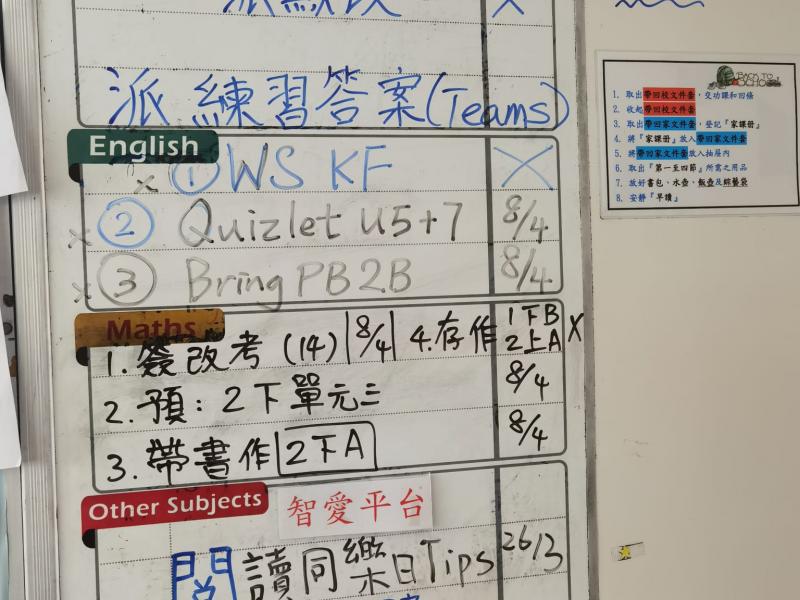 派 練習答案(Teams)
English
① WS KF X
② Quizlet U5+7 8/4
③ Bring PB2B 8/4
Maths
1. 簽改考 (14) |8/4| 4.存作 1下B 2上A X
2. 預: 2下單元三 8/4
3. 帶書作 2下A 8/4
Other Subjects 智愛平台
閱讀同樂日Tips 26/3
BACK TO SCHOOL
1. 取出帶回校文件套，交功課和回條
2. 收起帶回校文件套
3. 取出帶回家文件套，登記『家課冊』
4. 將『家課冊』放入帶回家文件套
5. 將帶回家文件套放入抽屜內
6. 取出『第一至四節』所需之用品
7. 放好書包、水壺、飯壺及綜藝袋
8. 安靜『早讀』